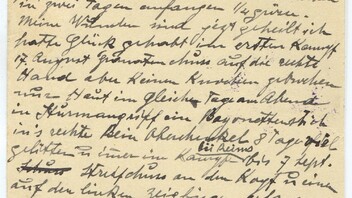 in zwei Tagen anfangen
Meine Wunden sind jezt geheilt ich
hatte Glück gehabt im ersten Kampf
17 August Granatenschuss auf die rechte
Hand aber keinen Knochen gebrochen
nur Haut im gleichen Tage am Abend
in Sturmangriff ein Bayonettenstich
in's rechte Bein Oberschenkel 8 Tage viel
bei Reims
gelitten u immer im Kampf bis 7 Sept.
Streifschuss an den Kopf u einen
auf der linken